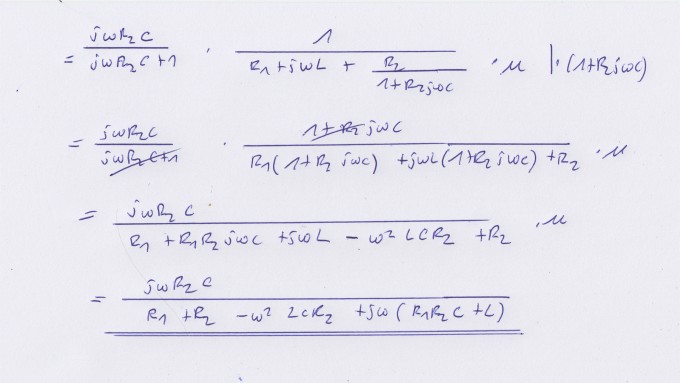 = jωR₂C / (jωR₂C+1) · 1 / (R₁+jωL + R₂ / (1+R₂jωC)) · u |·(1+R₂jωC)
= jωR₂C / (jωR₂C+1) · (1+R₂jωC) / (R₁(1+R₂jωC) +jωL(1+R₂jωC) +R₂) · u
= jωR₂C / (R₁ +R₁R₂jωC +jωL - ω²LCR₂ +R₂) · u
= jωR₂C / (R₁+R₂ -ω²LCR₂ +jω(R₁R₂C+L))